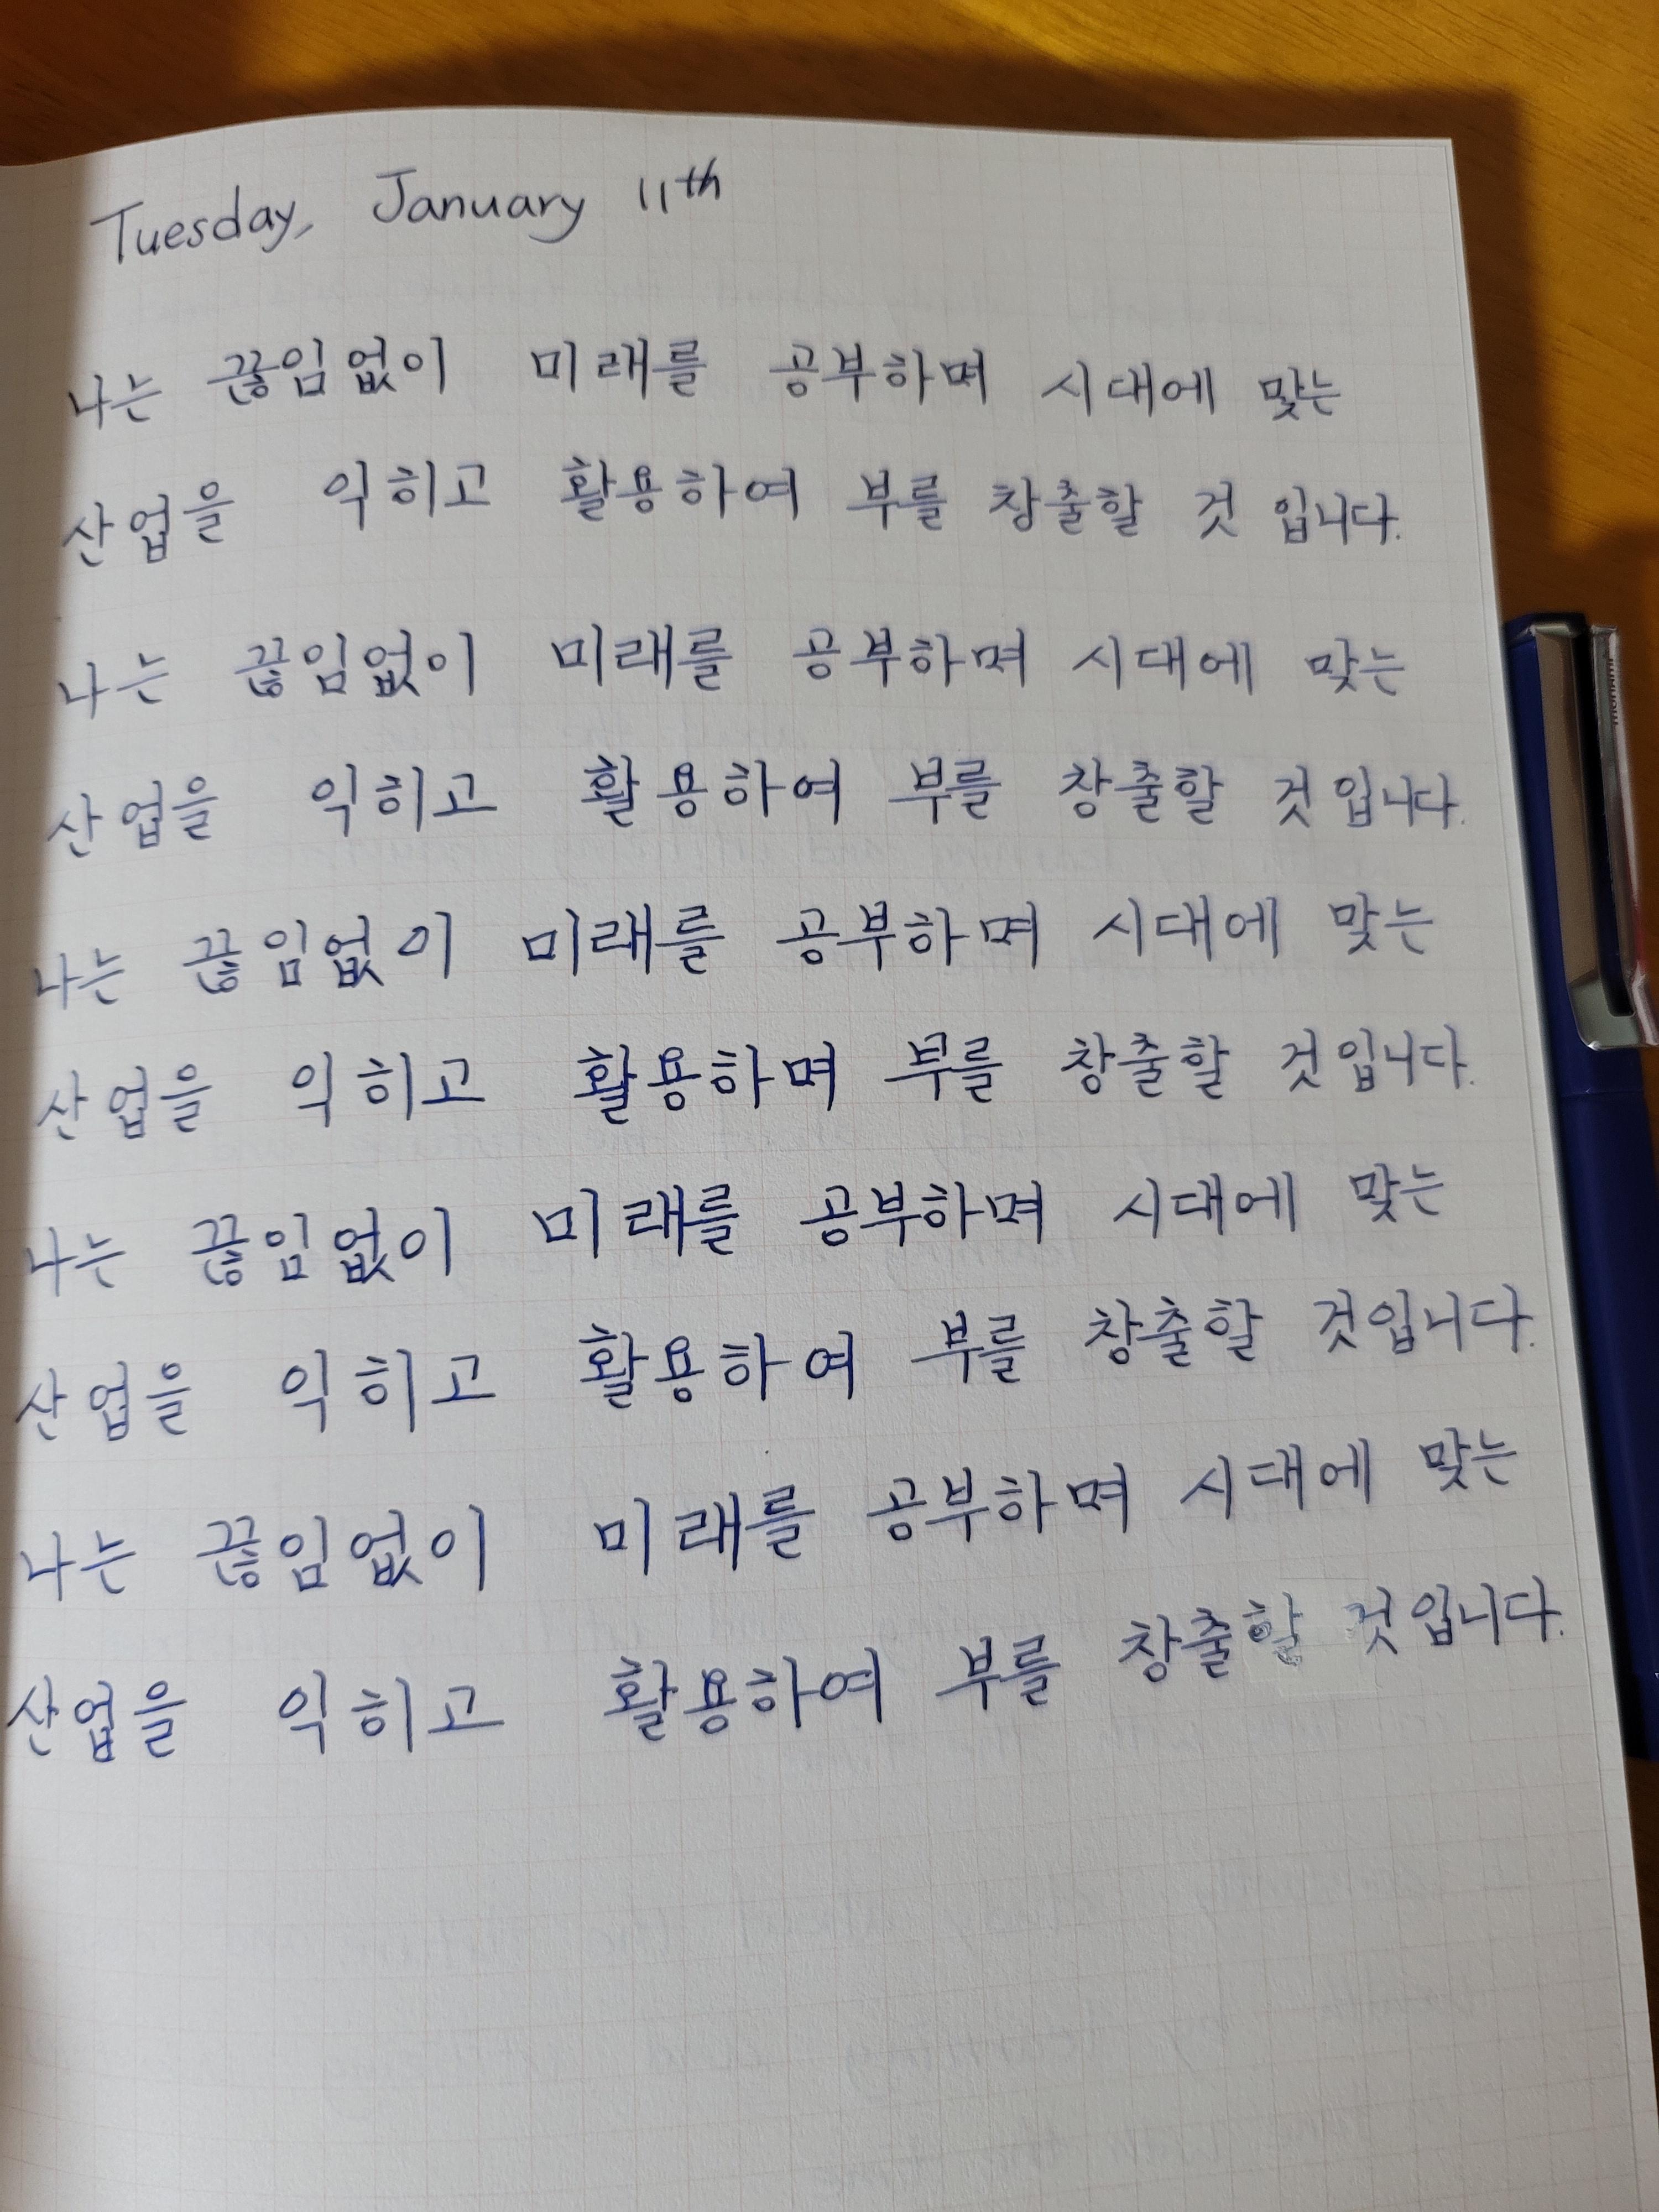 Tuesday, January 11th
나는 끊임없이 미래를 공부하며 시대에 맞는
산업을 익히고 활용하여 부를 창출할 것 입니다.
나는 끊임없이 미래를 공부하며 시대에 맞는
산업을 익히고 활용하여 부를 창출할 것입니다.
나는 끊임없이 미래를 공부하며 시대에 맞는
산업을 익히고 활용하며 부를 창출할 것입니다.
나는 끊임없이 미래를 공부하며 시대에 맞는
산업을 익히고 활용하여 부를 창출할 것입니다.
나는 끊임없이 미래를 공부하며 시대에 맞는
산업을 익히고 활용하여 부를 창출할 것입니다.
monami